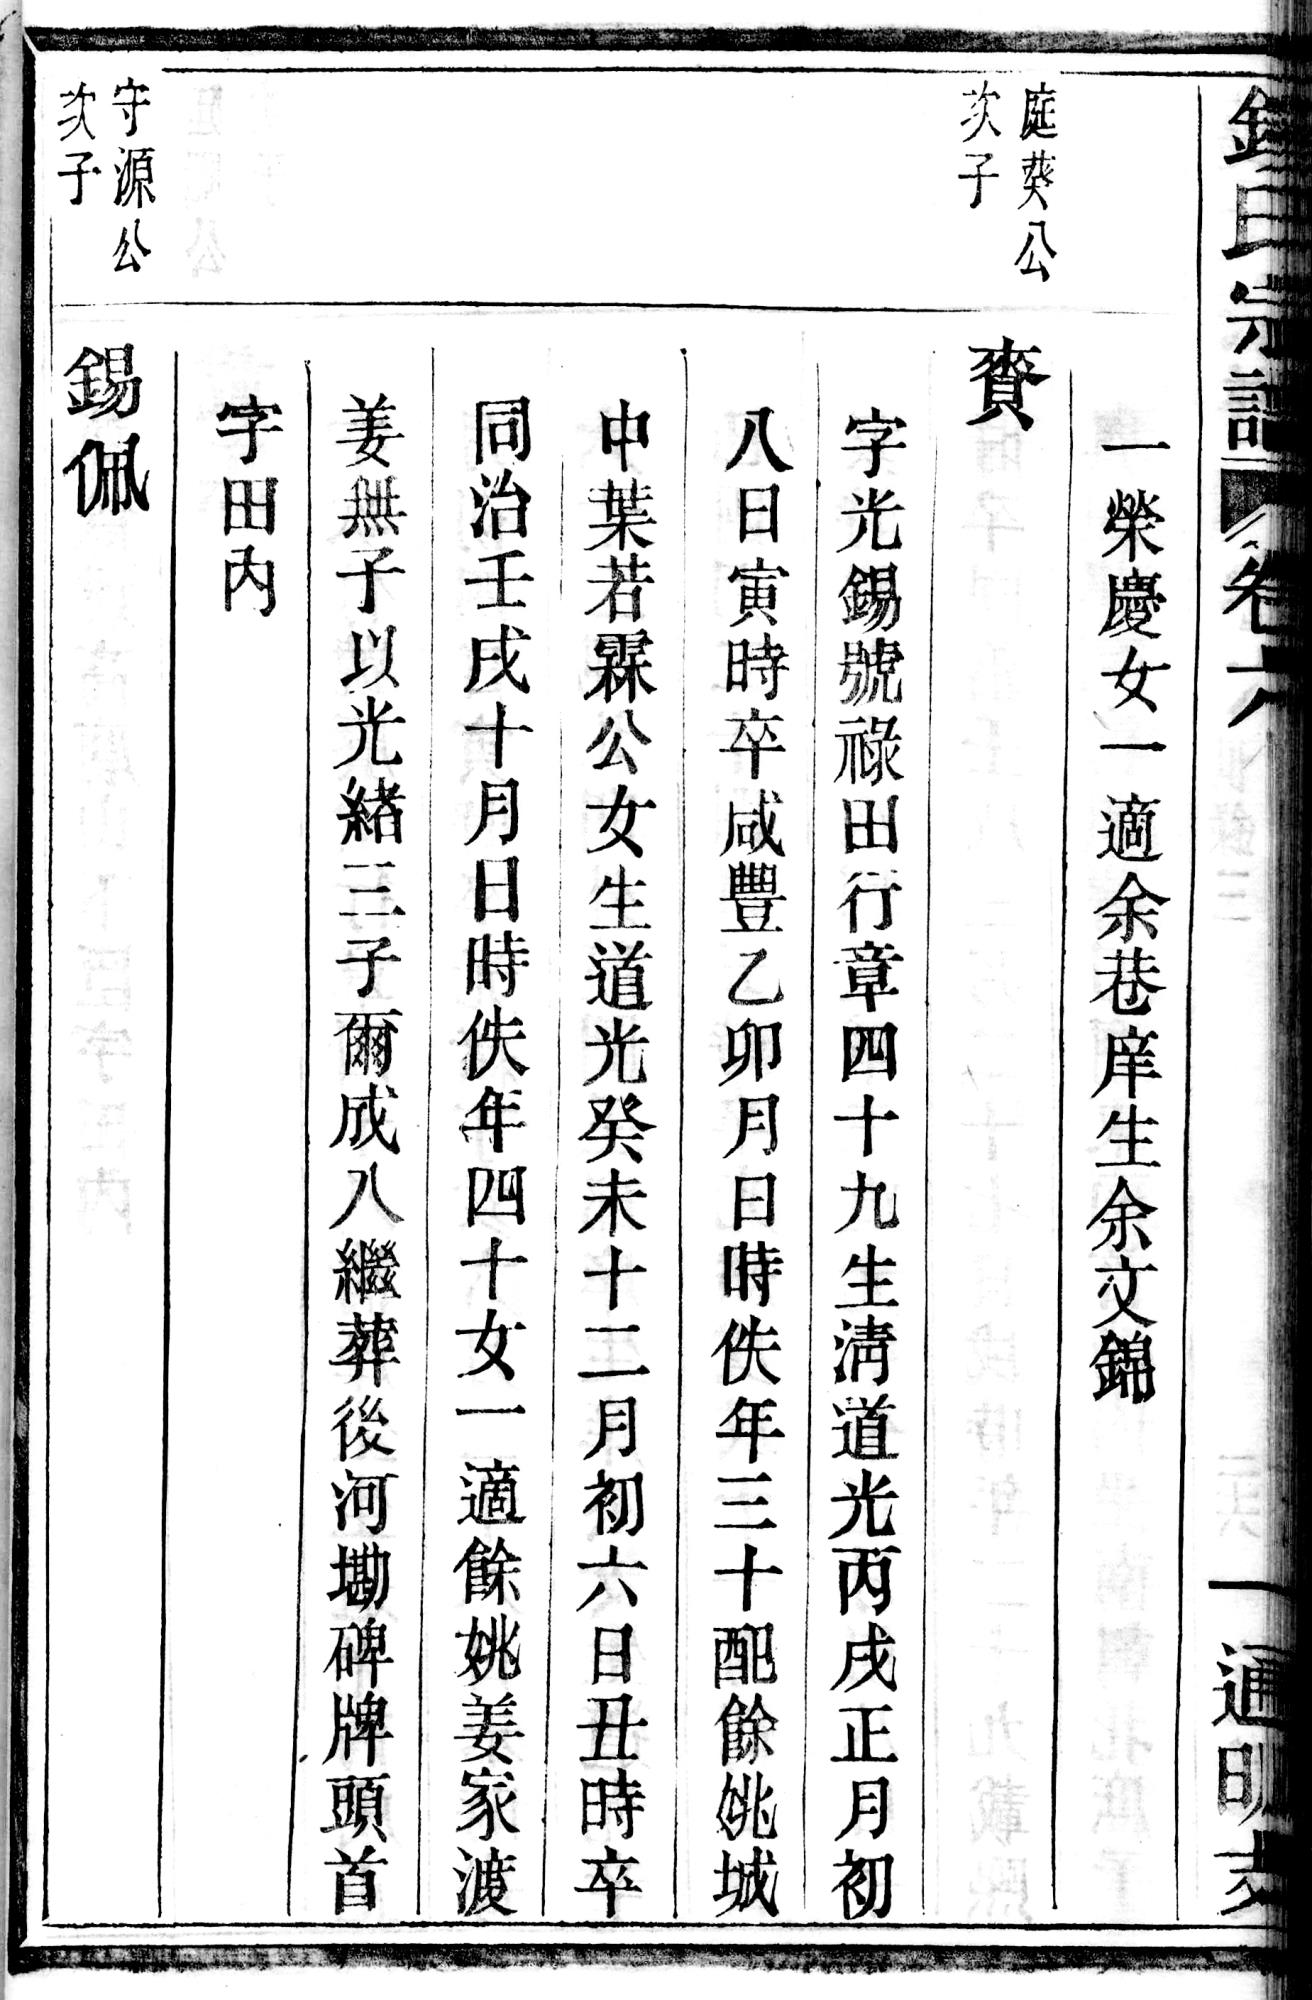 氏宗譜 卷六 一 通明支
一榮慶女一適余巷庠生余文錦
庭葵公
次子
賚
字光錫號祿田行章四十九生淸道光丙戌正月初
八日寅時卒咸豐乙卯月日時佚年三十配餘姚城
中葉若霖公女生道光癸未十二月初六日丑時卒
同治壬戌十月日時佚年四十女一適餘姚姜家渡
姜無子以光緒三子爾成入繼葬後河墈碑牌頭首
字田內
守源公
次子
錫佩